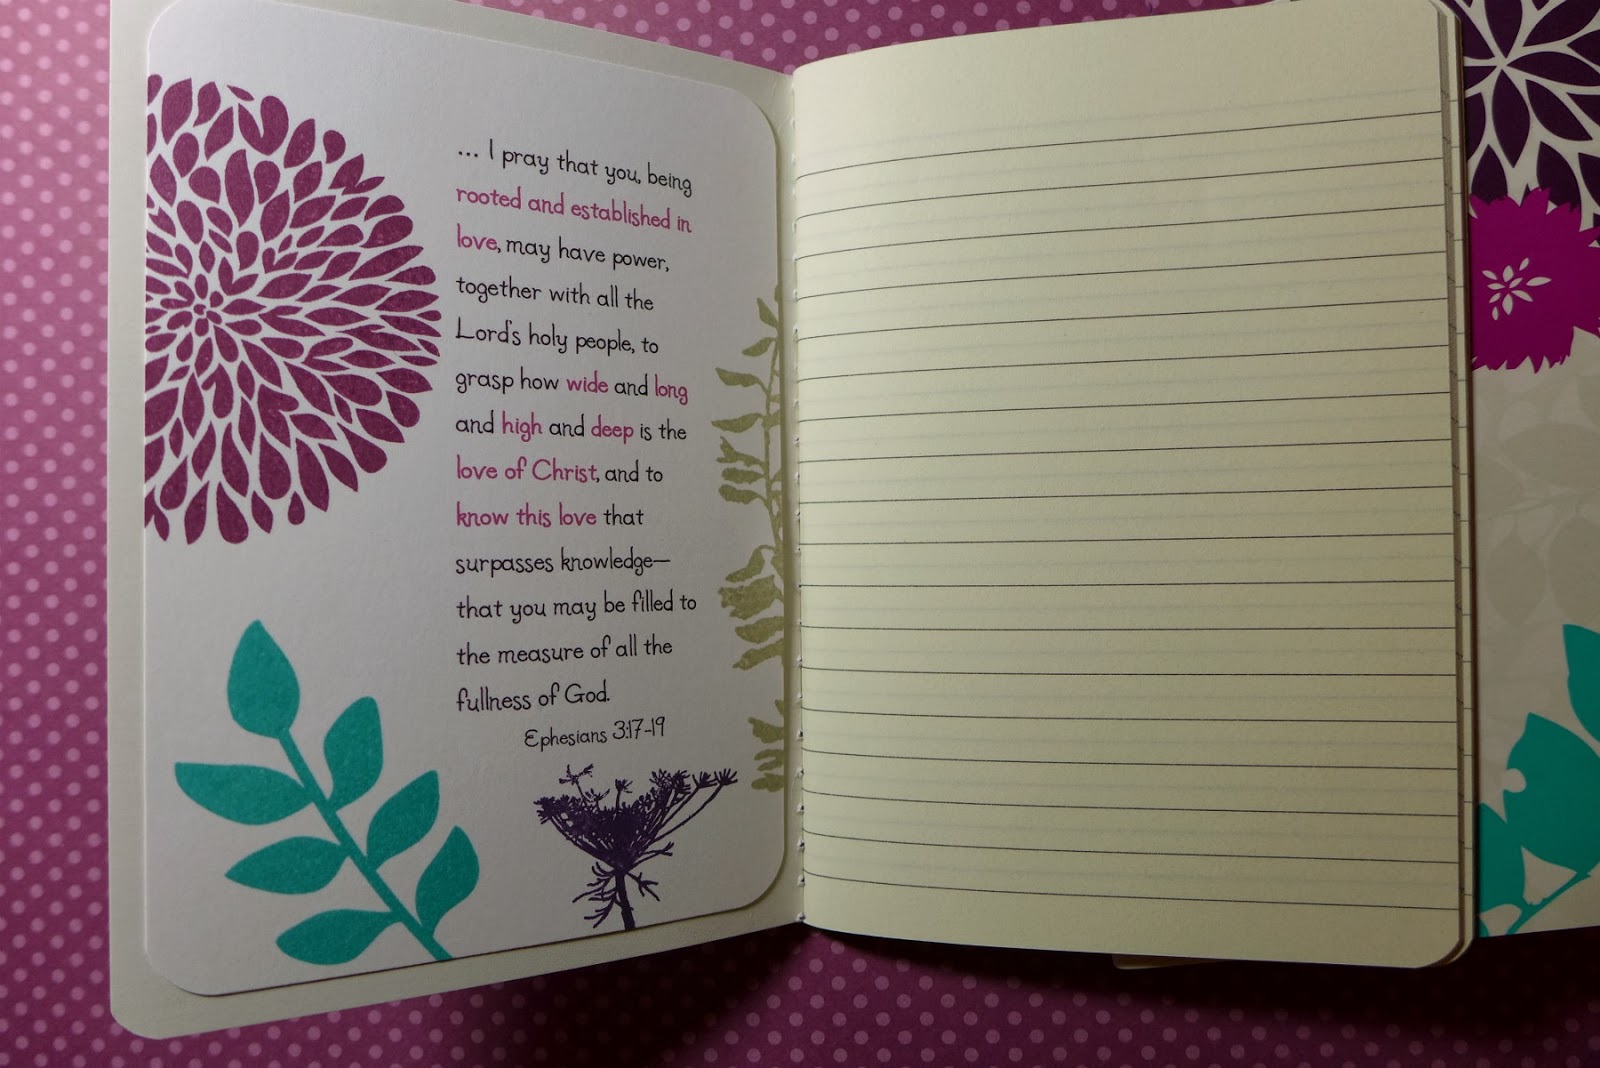 ... I pray that you, being
rooted and established in
love, may have power,
together with all the
Lord's holy people, to
grasp how wide and long
and high and deep is the
love of Christ, and to
know this love that
surpasses knowledge—
that you may be filled to
the measure of all the
fullness of God.
Ephesians 3:17-19